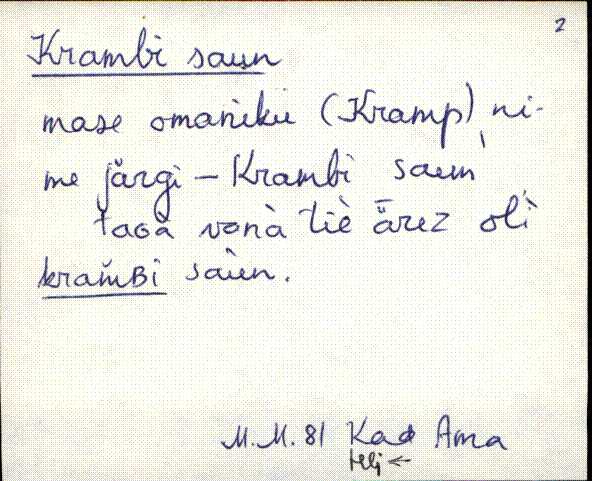 2
Krambi saun
mase omaniku (Kramp) ni-
me järgi – Krambi saun
taGà vanà tiè ärez olì
kram̆Bi saùn.
M.M. 81 Kad Ama
Hlj ←